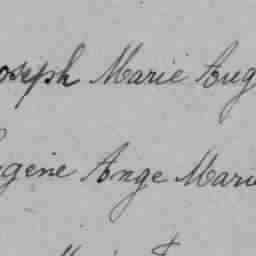 oseph Marie Aug
gène Ange Marie